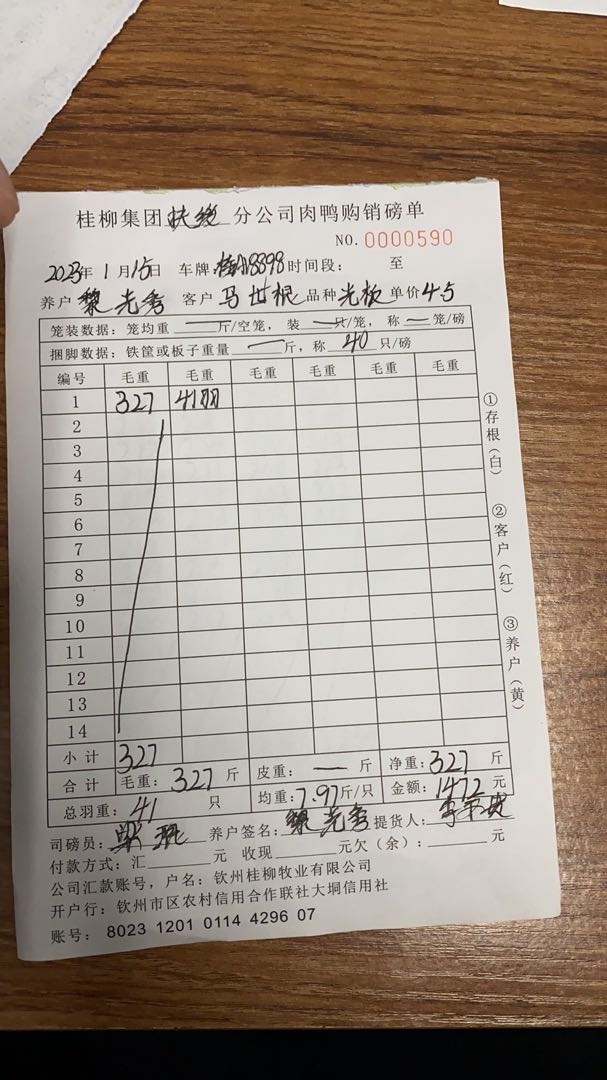 桂柳集团扶绥分公司肉鸭购销磅单
NO. 0000590
2023年 1 月 15日 车牌 8898 时间段: 至
养户 黎光秀 客户 马世根 品种 光板 单价 4.5
笼装数据: 笼均重 — 斤/空笼, 装 — 只/笼, 称 — 笼/磅
捆脚数据: 铁筐或板子重量 — 斤, 称 40 只/磅
编号 毛重 毛重 毛重 毛重 毛重 毛重
1 327 41羽
2
3
4
5
6
7
8
9
10
11
12
13
14
小计 327
合计 毛重: 327 斤 皮重: — 斤 净重: 327 斤
总羽重: 41 只 均重: 7.97 斤/只 金额: 1472 元
司磅员: 养户签名: 黎光秀 提货人:
付款方式: 汇 元 收现 元欠(余): 元
公司汇款账号, 户名: 钦州桂柳牧业有限公司
开户行: 钦州市区农村信用合作联社大垌信用社
账号: 8023 1201 0114 4296 07
①存根(白) ②客户(红) ③养户(黄)